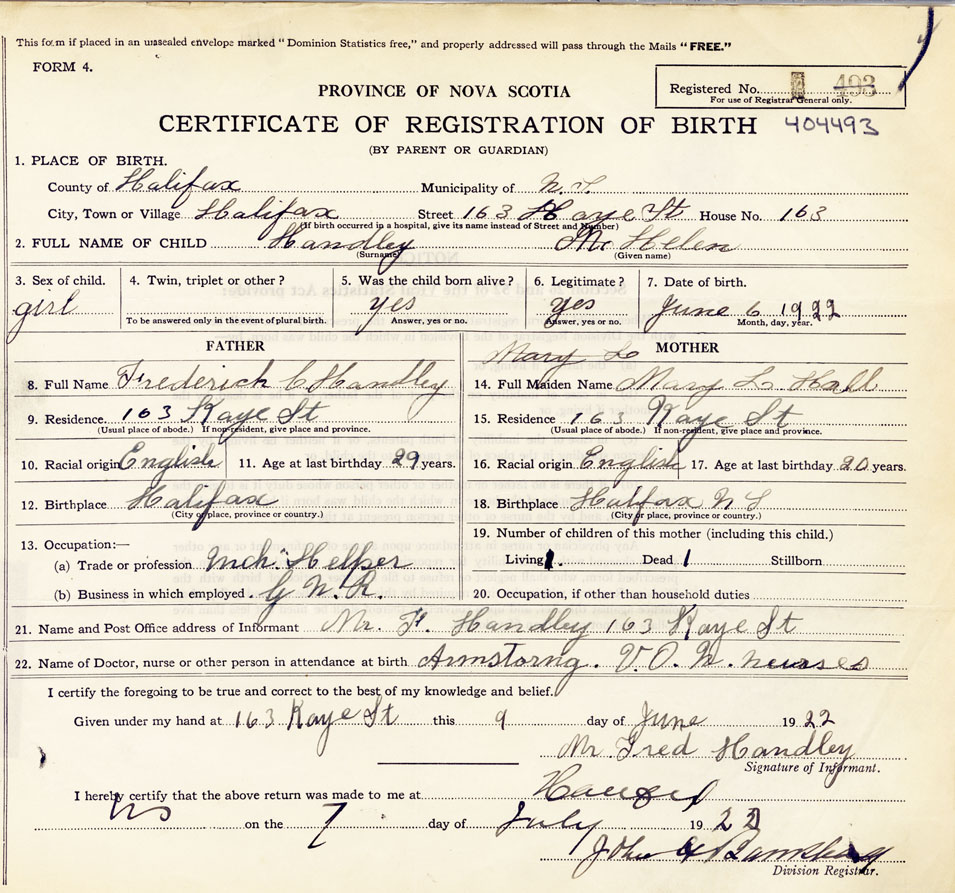 This form if placed in an unsealed envelope marked "Dominion Statistics free," and properly addressed will pass through the Mails "FREE."
FORM 4.
Registered No. 493
For use of Registrar General only.
PROVINCE OF NOVA SCOTIA
CERTIFICATE OF REGISTRATION OF BIRTH 404493
(BY PARENT OR GUARDIAN)
1. PLACE OF BIRTH.
County of Halifax Municipality of N.S.
City, Town or Village Halifax Street 163 Kaye St House No. 163
(If birth occurred in a hospital, give its name instead of Street and Number)
2. FULL NAME OF CHILD Handley Helen
(Surname) (Given name)
3. Sex of child. 4. Twin, triplet or other? 5. Was the child born alive? 6. Legitimate? 7. Date of birth.
girl yes yes June 6 1922
To be answered only in the event of plural birth. Answer, yes or no. Answer, yes or no. Month, day, year.
FATHER
8. Full Name Frederick C Handley
9. Residence 163 Kaye St
(Usual place of abode.) If non-resident, give place and province.
10. Racial origin English 11. Age at last birthday 29 years.
12. Birthplace Halifax
(City or place, province or country.)
13. Occupation:—
(a) Trade or profession Mch. Helper
(b) Business in which employed
Mary L MOTHER
14. Full Maiden Name Mary L Hall
15. Residence 163 Kaye St
(Usual place of abode.) If non-resident, give place and province.
16. Racial origin English 17. Age at last birthday 20 years.
18. Birthplace Halifax N S
(City or place, province or country.)
19. Number of children of this mother (including this child.)
Living 1. Dead 1 Stillborn
20. Occupation, if other than household duties
21. Name and Post Office address of Informant Mr. F. Handley 163 Kaye St
22. Name of Doctor, nurse or other person in attendance at birth Armstorng. V. O. N. nurses
I certify the foregoing to be true and correct to the best of my knowledge and belief.
Given under my hand at 163 Kaye St this 9 day of June 1922
Mr Fred Handley
Signature of Informant.
I hereby certify that the above return was made to me at
NS on the 7 day of July 1922
John
Division Registrar.